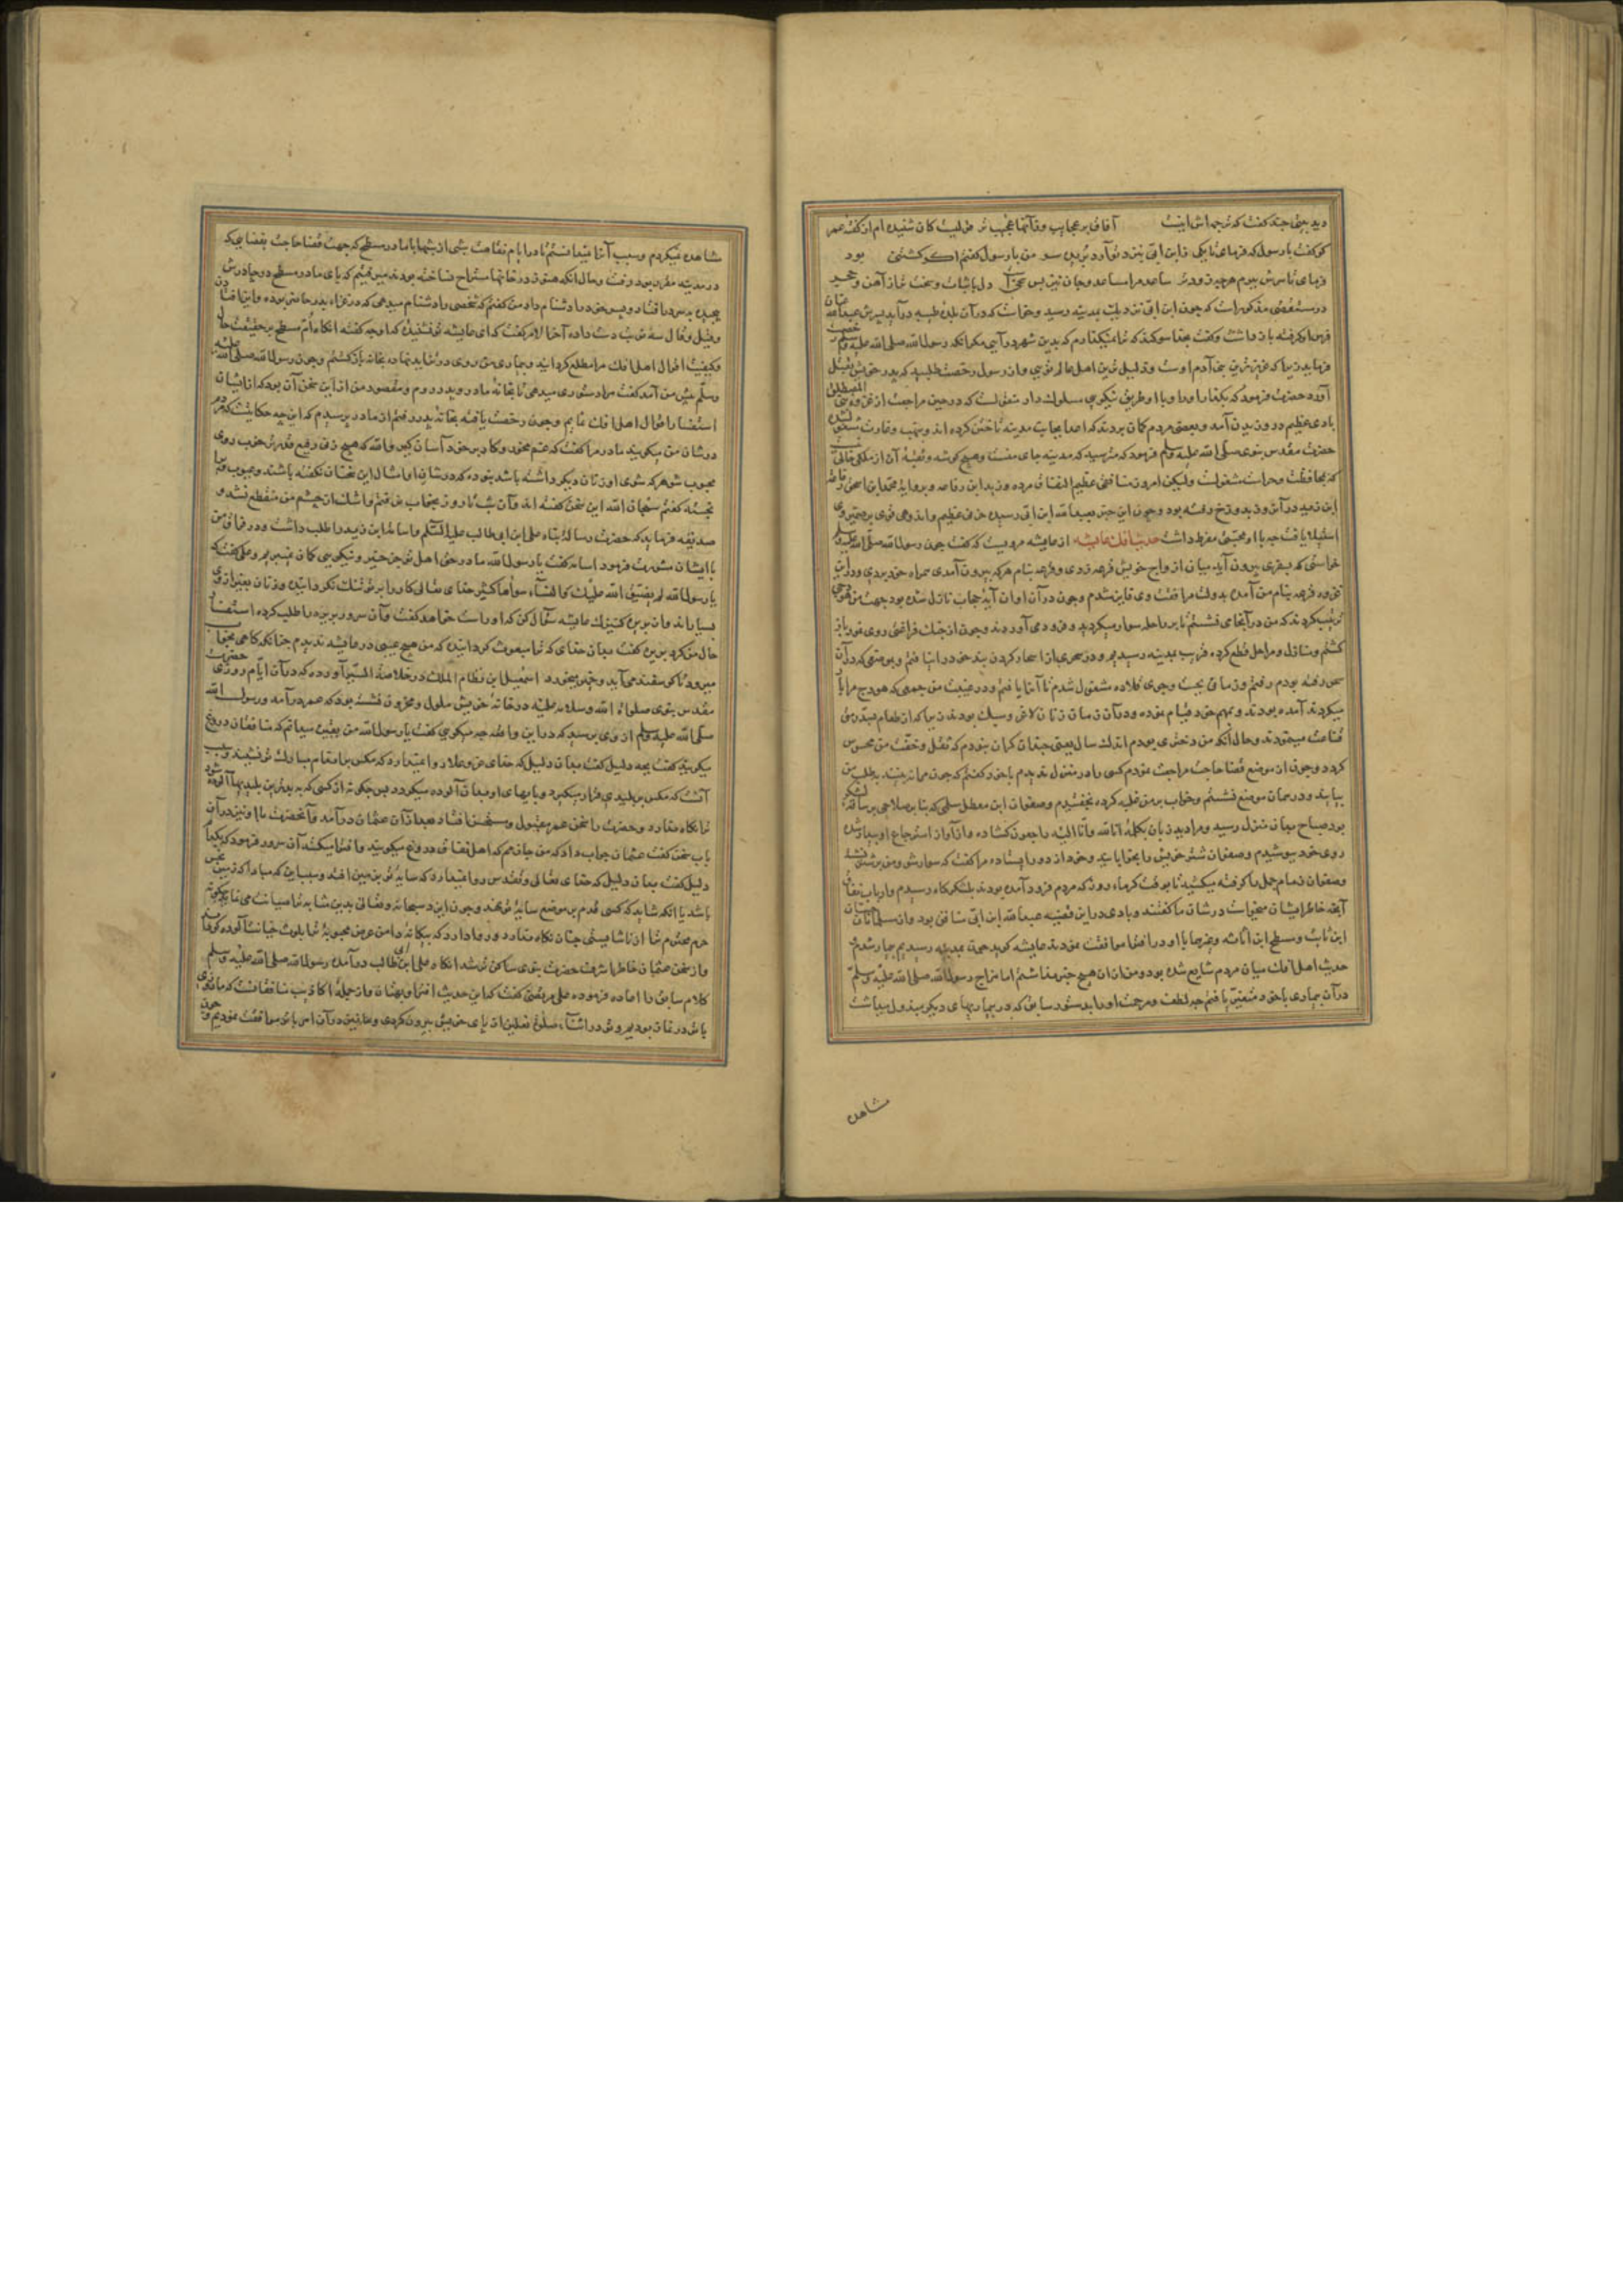 دید بیتی چند گفت که ترجمه اش اینست آفاق پر عجایب و ز آنها عجیب تر
کو گفت با رسول که فرمای تا یکی
درست قصص مذکور است که چون ابن ابی نزدیک بمدینه رسید و خواست که در آن بلده طیبه درآید پسرش عبدالله
فرس او گرفته باز داشت و گفت بخدا سوکند که ترا نمیگذارم که بدین شهر درآیی مکر آنکه رسول الله صلی الله علیه وسلم رخصت
فرماید زیرا که عزیزترین بنی آدم اوست و ذلیل ترین اهل عالم تویی و از رسول رخصت طلبید که پدر خویش بقتل
آورد حضرت فرمود که بگذار او را و با او طریق نیکویی مسلوک دار منقولست که در حین مراجعت از غزوه بنی المصطلق
بادی عظیم در وزیدن آمد و بعضی مردم کمان بردند که اعدا بجانب مدینه تاختن کرده اند و بنهب و غارت مشغول شده
حضرت مقدس نبوی صلی الله علیه وسلم فرمود که مترسید که مدینه جای منست و هیچ کوشه و نقبه آن از ملکی خالی نیست
که بمحافظت و حراست مشغولست ولیکن امروز منافقی عظیم النفاق مرده و زید ابن رفاعه و بروایة محمد ابن اسحق رفاعه
ابن زید در آن روز بدوزخ رفته بود و چون این خبر بعبدالله ابن ابی رسید حزن عظیم و اندوهی قوی بر ضمیر وی
استیلا یافت چه با او محبتی مفرط داشت حدیث افک عایشه از عایشه مرویست که گفت چون رسول الله صلی الله علیه وسلم
خواستی که بسفری بیرون آید میان ازواج خویش قرعه زدی و قرعه بنام هر که بیرون آمدی همراه خود بردی و در این
غزوه قرعه بنام من آمده بدولت مرافقت وی فایز شدم و چون در آن اوان آیة حجاب نازل شده بود بجهت من هودجی
ترتیب کردند که من در آنجا می نشستم تا بر راحله سوار میکردید و فرود می آوردند و چون از جنک فراغتی روی نمود باز
کشتم و منازل و مراحل قطع کرده قریب بمدینه رسیدیم و در سحری
رفته بودم رفتم و زمانی بجست و جوی قلاده مشغول شدم تا آنرا یافتم و در غیبت من جمعی که هودج مرا بار
میکردند آمده بودند و بمهم خود قیام نموده و در آن زمان زنان لاغر و سبک بودند زیرا که از طعام
قناعت مینمودند و حال آنکه من دختری بودم اندک سال یعنی چندان کران نبودم که ثقل و خفت من محسوس
کردد و چون از موضع قضا حاجت مراجعت نمودم کسی را در منزل ندیدم با خود گفتم که چون مرا نه بینند بطلب من
بیایند و در همان موضع نشستم و خواب بر من غلبه کرده بخفتیدم و صفوان ابن معطل سلمی که بنا بر صلاحی بر ساقه لشکر
بود صباح بدان منزل رسید و مرا دید زبان بکلمه انا لله و انا الیه راجعون کشاده و از آواز استرجاع او بیدار شدم
روی خود بپوشیدم و صفوان شتر خویش را بخوابانید و خود از دور ایستاده مرا گفت که سوار شو و من بر شتر نشسته
و صفوان زمام جمل را کرفته میکشید تا بوقت کرماء روز که مردم فرود آمده بودند بلشکرکاه رسیدیم و ارباب نفاق
آنچه خاطر ایشان میخواست در شان ما گفتند و بادی در این قضیه عبدالله ابن ابی منافق بود و از مسلمانان حسان
ابن ثابت و مسطح ابن اثاثه و غیرهما با او در افترا موافقت نمودند عایشه گوید چون بمدینه رسیدیم بیمار شدم
حدیث اهل افک میان مردم شایع شده بود و من از آن هیچ خبر نداشتم اما مزاج رسول الله صلی الله علیه وسلم
در آن بیماری با خود متغیر یافتم چه لطف و مرحمت او را بدستور سابق که در بیماریهای دیگر مبذول میداشت
مشاهده
مشاهده نمیکردم و سبب آنرا نمیدانستم تا در ایام نقاهت شبی از شبها با مادر مسطح که جهت قضا حاجت بفضایی که
در مدینه مقرر بود رفت و حال آنکه هنوز در خانها مستراح نساخته بودند
و قیل و قال سه نوبت دست داده آخر الامر گفت که ای عایشه تو نشنیدهٔ که او چه گفته آنکاه ام مسطح بر حقیقت حال
و کیفیت اقوال اهل افک مرا مطلع کردانید و بیماری من روی در تزاید نهاده بخانه بازکشتم و چون رسول الله صلی الله علیه
وسلم پیش من آمد گفت مرا دستوری میدهی تا بخانهٔ مادر و پدر روم و مقصود من از این سخن آن بود که از ایشان
استفسار اقوال اهل افک نمایم و چون رخصت یافته بخانهٔ پدر رفتم از مادر پرسیدم که این چه حکایتست که مردم
در شان من میکویند مادر مرا گفت که غم مخور و کار بر خود آسان کیر والله که هیچ زنی رفیع قدر خوب روی
محبوب شوهر که شوی او زنان دیگر داشته باشد نبوده که در شان او امثال این سخنان نگفته باشند
گفتم سبحان الله این سخن گفته اند و آن شب تا روز بخواب نرفتم و اشک از چشم من منقطع نشد و
صدیقه فرماید که حضرت رسالت پناه علی ابن ابی طالب علیه السلام و اسامة ابن زید را طلب داشت و در فراق من
با ایشان مشورت فرمود اسامه گفت یا رسول الله ما در حق اهل تو جز خیر و نیکویی کمان نمیبریم و علی گفت که
یا رسول الله لم یضیق الله علیک و النساء سواها کثیر خدای تعالی کار را بر تو تنک نکردانیده و زنان بغیر از وی
بسیارند و از بریره کنیزک عایشه سؤال کن که او راست خواهد گفت و آن سرور بریره را طلب کرده استفسار
حال من کرد بریره گفت بدان خدای که ترا مبعوث کردانیده که من هیچ عیبی در عایشه ندیدم جز آنکه کاهی بخواب
میرود تا کوسفند می آید و خمیر میخورد اسمعیل ابن نظام الملک در خلاصة السیر آورده که در آن ایام روزی حضرت
مقدس نبوی صلوات الله و سلامه علیه در خانهٔ خویش ملول و محزون نشسته بود که عمر درآمد و رسول الله
صلی الله علیه وسلم از وی پرسید که در این واقعه چه میگویی گفت یا رسول الله من بیقین میدانم که منافقان دروغ
میکویند گفت بچه دلیل گفت بدان دلیل که خدای عز و علا روا نمیدارد که مکس بر اندام مبارک تو نشیند و سبب
آنست که مکس بر پلیدی قرار میکیرد و پایهای او بدان آلوده میکردد پس چکونه از کسی که به بدترین پلیدیها آلوده شود
ترا نکاه ندارد و حضرت را سخن عمر مقبول و مستحسن افتاد بعد از آن عثمان درآمد و آنحضرت با او نیز در آن
باب سخن گفت عثمان جواب داد که من جازمم که اهل نفاق دروغ میکویند و افترا میکنند آن سرور فرمود که بکدام
دلیل گفت بدان دلیل که خدای تعالی و تقدس روا نمیدارد که سایهٔ تو بر زمین افتد و سبب این که مبادا که زمین نجس
باشد یا آنکه شاید که کسی قدم بر موضع سایهٔ تو نهد و چون ایزد سبحانه و تعالی بدین مثابه ترا صیانت می نماید چکونه
حرم محترم ترا از ناشایستی چنان نکاه ندارد و روا دارد که بیکانهٔ دامن عرض محبوبهٔ ترا بلوث خیانت آلوده کرداند
و از سخن عثمان خاطر اشرف حضرت نبوی ساکن تر شد آنکاه علی ابن ابی طالب درآمده رسول الله صلی الله علیه وسلم
کلام سابق را اعاده فرموده علی مرتضی گفت که این حدیث افترا و بهتان و از جملهٔ اکاذیب منافقانست که ما روزی
با تو در نماز بودیم و تو در اثناء صلوة نعلین از پای خویش بیرون کردی و ما نیز در آن امر با تو موافقت نمودیم و چون